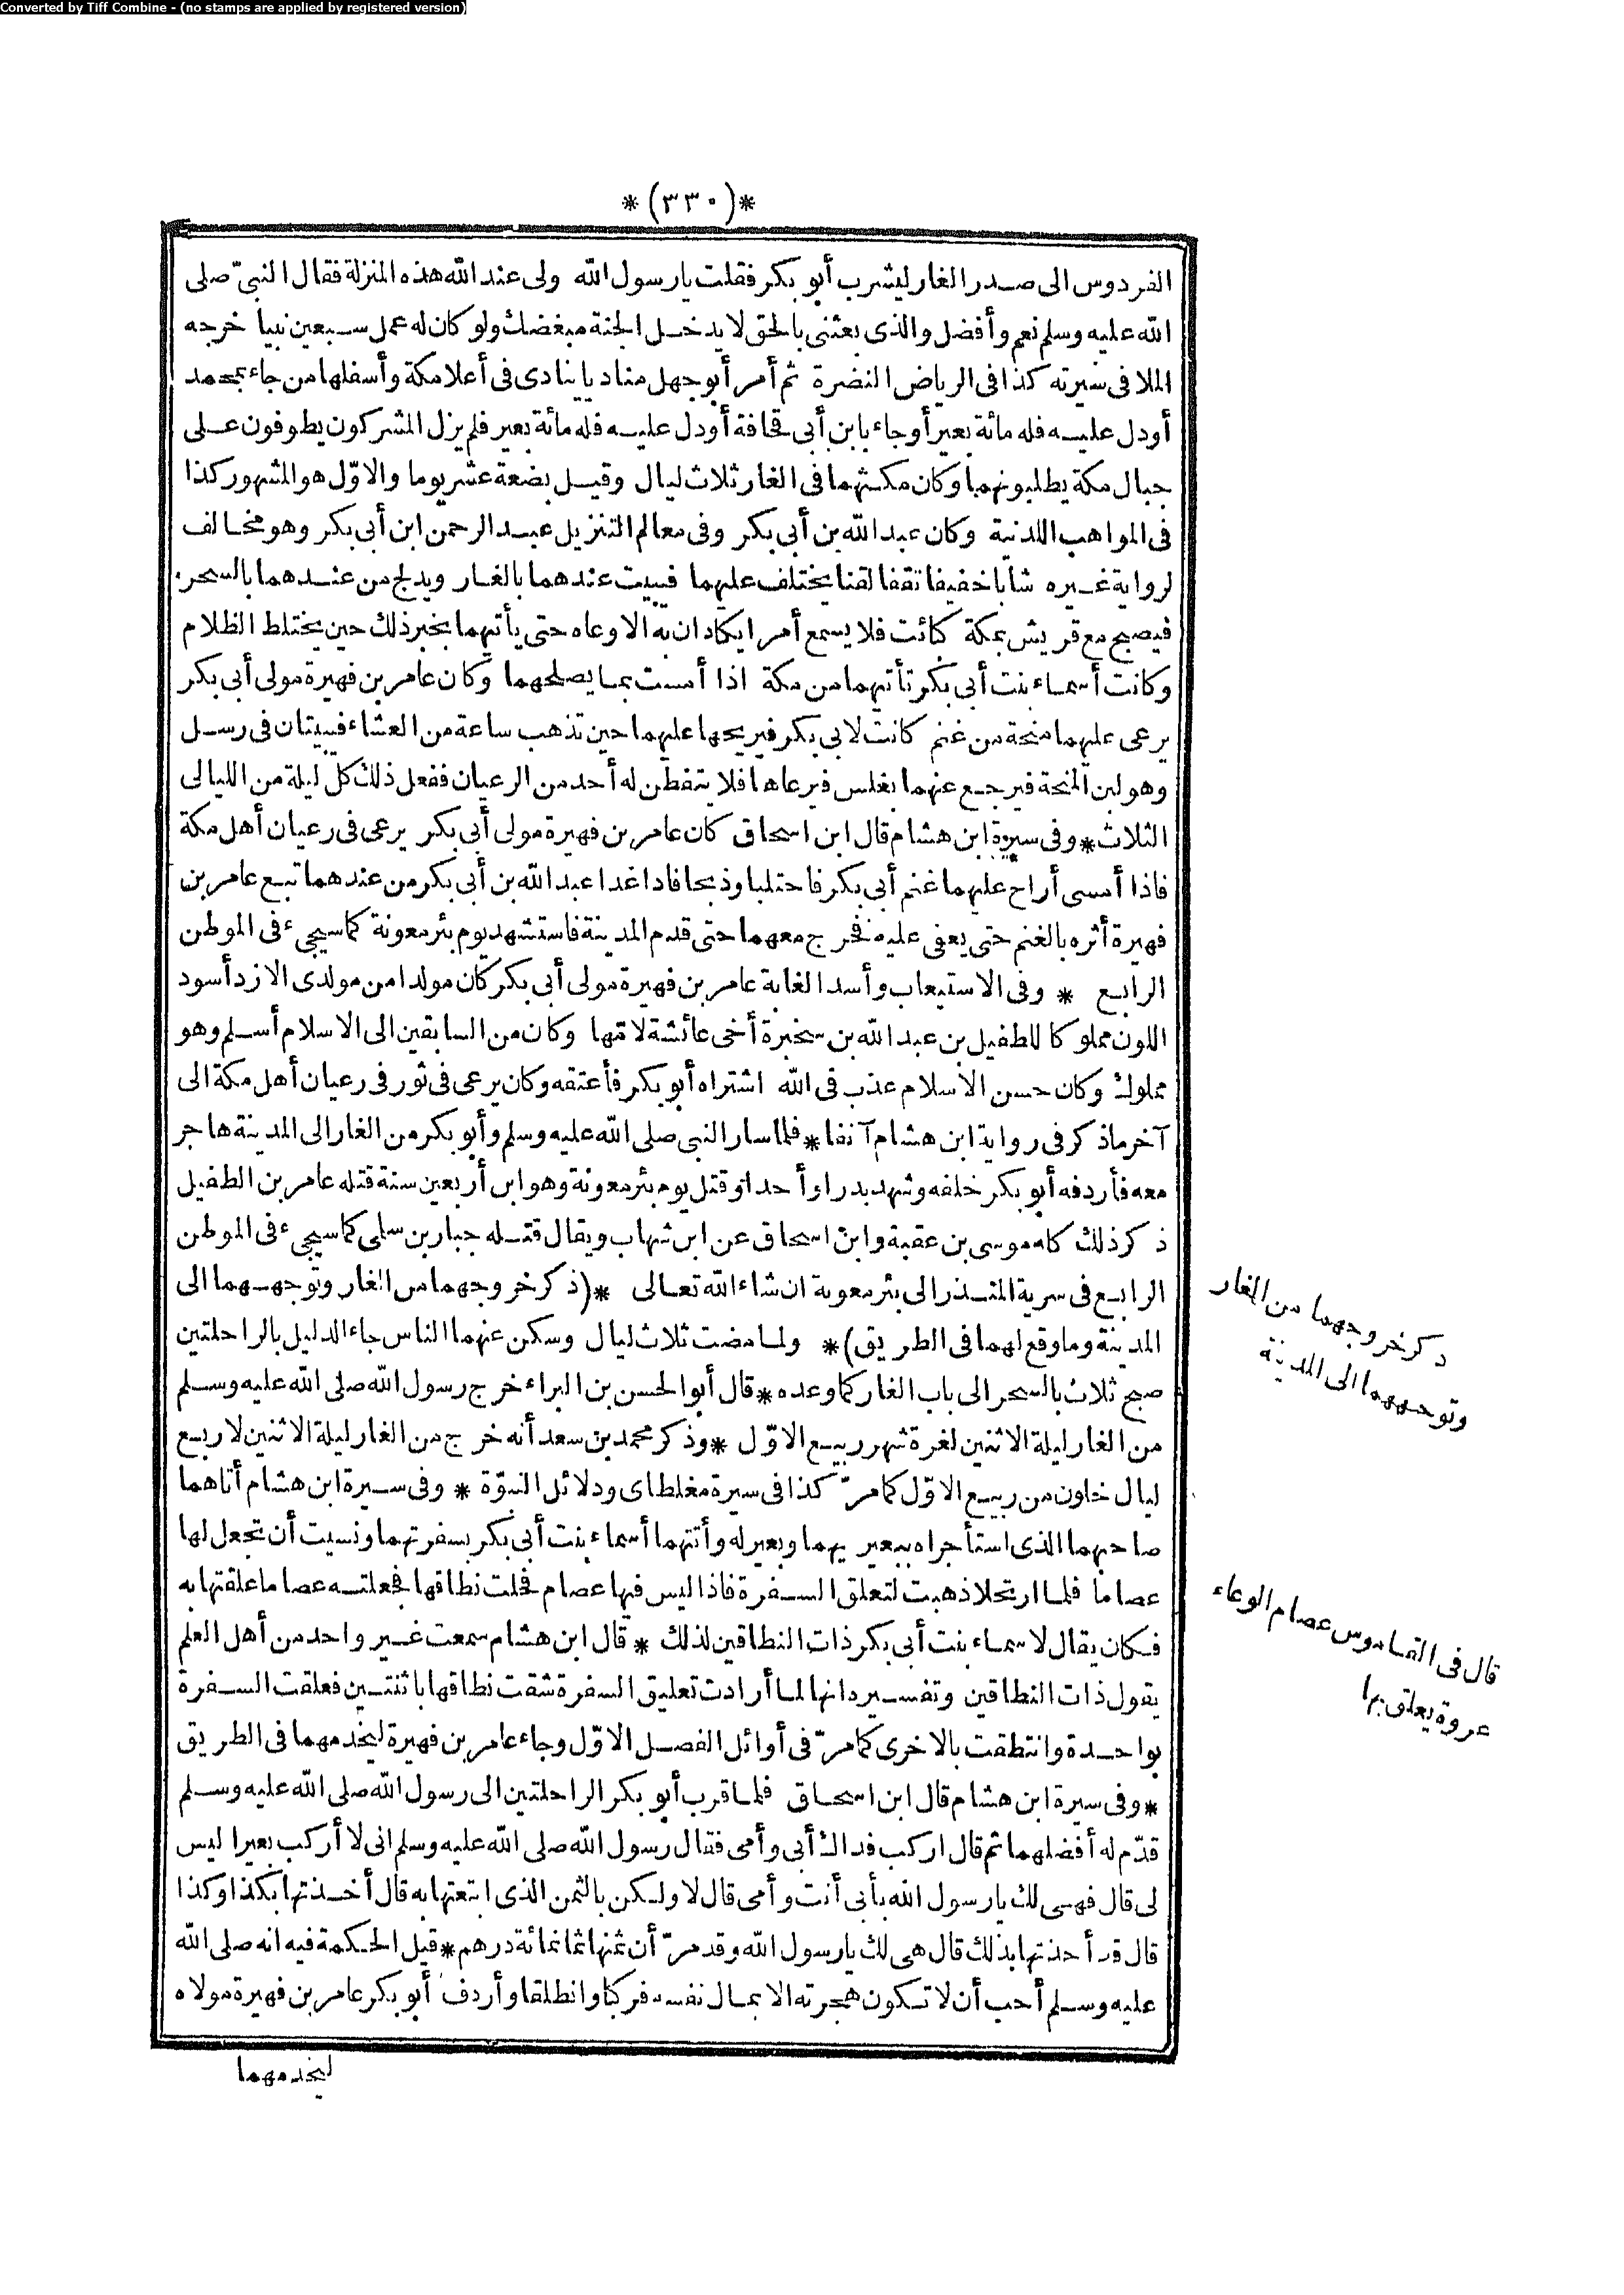 Converted by Tiff Combine - (no stamps are applied by registered version)
*(٣٣٠)*
الفردوس الى صدر الغار ليشرب أبو بكر فقلت يارسول الله ولى عند الله هذه المنزلة فقال النبىّ صلى
الله عليه وسلم نعم وأفضل والذى بعثنى بالحق لا يدخل الجنة مبغضك ولو كان له عمل سبعين نبيا خرجه
الملا فى سيرته كذا فى الرياض النضرة ثم أمر أبو جهل مناديا ينادى فى أعلا مكة وأسفلها من جاء بمحمد
أودل عليه فله مائة بعير أوجاء بابن أبى قحافة أودل عليه فله مائة بعير فلم يزل المشركون يطوفون على
جبال مكة يطلبونهما وكان مكثهما فى الغار ثلاث ليال وقيل بضعة عشر يوما والاوّل هو المشهور كذا
فى المواهب اللدنية وكان عبد الله بن أبى بكر وفى معالم التنزيل عبد الرحمن ابن أبى بكر وهو مخالف
لرواية غيره شابا خفيفا ثقفا لقنا يختلف عليهما فيبيت عندهما بالغار ويدلج من عندهما بالسحر
فيصبح مع قريش بمكة كائت فلا يسمع أمرا يكادان به الا وعاه حتى يأتيهما بخبر ذلك حين يختلط الظلام
وكانت أسماء بنت أبى بكر تأتيهما من مكة اذا أمست بما يصلحهما وكان عامر بن فهيرة مولى أبى بكر
يرعى عليهما منحة من غنم كانت لابى بكر فيريحها عليهما حين تذهب ساعة من العشاء فيبيتان فى رسل
وهو لبن المنحة فيرجع عنهما بغلس فيرعاها فلا يتفطن له أحد من الرعيان ففعل ذلك كل ليلة من الليالى
الثلاث*وفى سيرة ابن هشام قال ابن اسحاق كان عامر بن فهيرة مولى أبى بكر يرعى فى رعيان أهل مكة
فاذا أمسى أراح عليهما غنم أبى بكر فاحتلبا وذبحا فاذا غدا عبد الله بن أبى بكر من عندهما تبع عامر بن
فهيرة أثره بالغنم حتى يعفى عليه فخرج معهما حتى قدم المدينة فاستشهد يوم بئر معونة كما سيجىء فى الموطن
الرابع * وفى الاستيعاب وأسد الغابة عامر بن فهيرة مولى أبى بكر كان مولدا من مولدى الازد أسود
اللون مملوكا للطفيل بن عبد الله بن سخبرة أخى عائشة لامّها وكان من السابقين الى الاسلام أسلم وهو
مملوك وكان حسن الاسلام عذب فى الله اشتراه أبو بكر فأعتقه وكان يرعى فى ثور فى رعيان أهل مكة الى
آخر ماذكر فى رواية ابن هشام آنفا*فلما سار النبى صلى الله عليه وسلم وأبو بكر من الغار الى المدينة هاجر
معه فأردفه أبو بكر خلفه وشهد بدرا وأحدا وقتل يوم بئر معونة وهو ابن أربعين سنة قتله عامر بن الطفيل
ذكر ذلك كله موسى بن عقبة وابن اسحاق عن ابن شهاب ويقال قتله جبار بن سلمى كما سيجىء فى الموطن
الرابع فى سرية المنذر الى بئر معونة ان شاء الله تعالى *(ذكر خروجهما من الغار وتوجههما الى
المدينة وما وقع لهما فى الطريق)* ولما مضت ثلاث ليال وسكن عنهما الناس جاء الدليل بالراحلتين
صبح ثلاث بالسحر الى باب الغار كما وعده*قال أبو الحسن بن البراء خرج رسول الله صلى الله عليه وسلم
من الغار ليلة الاثنين لغرة شهر ربيع الاوّل *وذكر محمد بن سعد أنه خرج من الغار ليلة الاثنين لاربع
ليال خلون من ربيع الاوّل كما مرّ كذا فى سيرة مغلطاى ودلائل النبوّة * وفى سيرة ابن هشام أتاهما
صاحبهما الذى استأجراه ببعيريهما وبعير له وأتتهما أسماء بنت أبى بكر بسفرتهما ونسيت أن تجعل لها
عصاما فلما ارتحلا ذهبت لتعلق السفرة فاذا ليس فيها عصام فحلت نطاقها فجعلته عصاما علقتها به
فكان يقال لاسماء بنت أبى بكر ذات النطاقين لذلك * قال ابن هشام سمعت غير واحد من أهل العلم
يقول ذات النطاقين وتفسيره انها لما أرادت تعليق السفرة شقت نطاقها باثنتين فعلقت السفرة
بواحدة وانتطقت بالاخرى كما مرّ فى أوائل الفصل الاوّل وجاء عامر بن فهيرة ليخدمهما فى الطريق
*وفى سيرة ابن هشام قال ابن اسحاق فلما قرب أبو بكر الراحلتين الى رسول الله صلى الله عليه وسلم
قدّم له أفضلهما ثم قال اركب فداك أبى وأمى فقال رسول الله صلى الله عليه وسلم انى لا أركب بعيرا ليس
لى قال فهى لك يارسول الله بأبى أنت وأمى قال لا ولكن بالثمن الذى ابتعتها به قال أخذتها بكذا وكذا
قال قد أخذتها بذلك قال هى لك يارسول الله وقد مرّ أن ثمنها ثمانمائة درهم*قيل الحكمة فيه انه صلى الله
عليه وسلم أحب أن لا تكون هجرته الا بمال نفسه فركبا وانطلقا وأردف أبو بكر عامر بن فهيرة مولاه
ليخدمهما
ذكر خروجهما من الغار
وتوجههما الى المدينة
قال فى القاموس عصام الوعاء
عروة يعلق بها